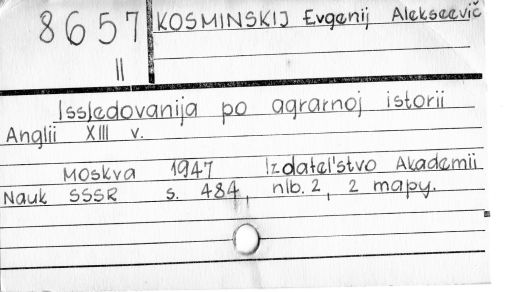 8657 KOSMINSKIJ Evgenij Alekseevič
II
Issledovanija po agrarnoj istorii
Anglii XIII v.
Moskva 1947 Izdatel'stvo Akademii
Nauk SSSR s. 484, nlb. 2, 2 mapy.